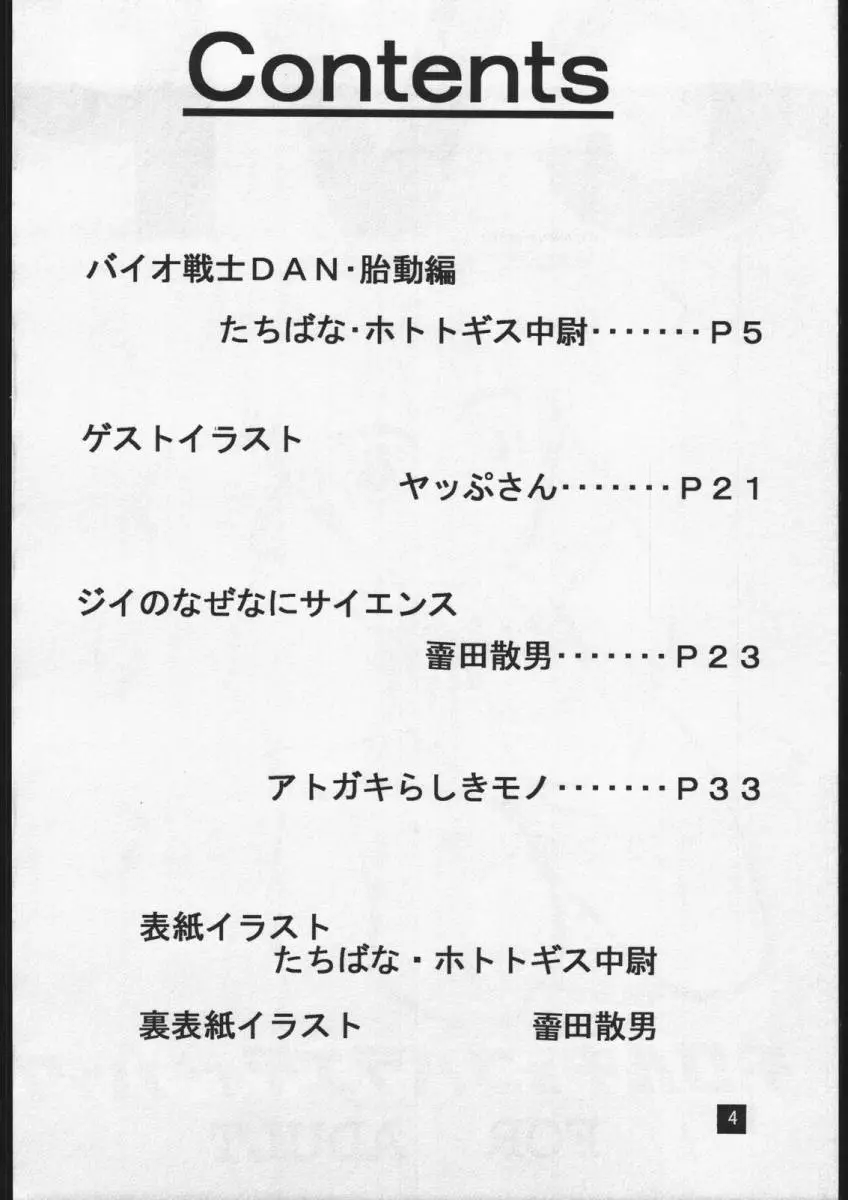 Contents
バイオ戦士DAN・胎動編
たちばな・ホトトギス中尉・・・・・・・P5
ゲストイラスト
ヤッぷさん・・・・・・・P21
ジイのなぜなにサイエンス
田散男・・・・・・・P23
アトガキらしきモノ・・・・・・・P33
表紙イラスト
たちばな・ホトトギス中尉
裏表紙イラスト 田散男
4
FOR ADULT